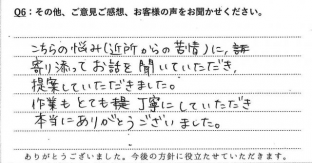 Q6：その他、ご意見ご感想、お客様の声をお聞かせください。
こちらの悩み(近所からの苦情)に、
寄り添ってお話を聞いていただき、
提案していただきました。
作業もとても丁寧にしていただき
本当にありがとうございました。
ありがとうございました。今後の方針に役立たせていただきます。